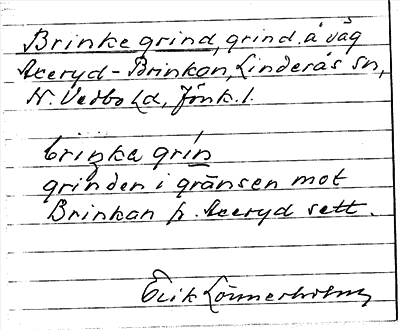 Brinke grind, grind å väg
Axeryd - Brinkan, Linderås sn,
N. Vedbo hd, Jönk. l.
briṇka grín
grinden i gränsen mot
Brinkan fr. Axeryd sett.
Erik Lönnerholm